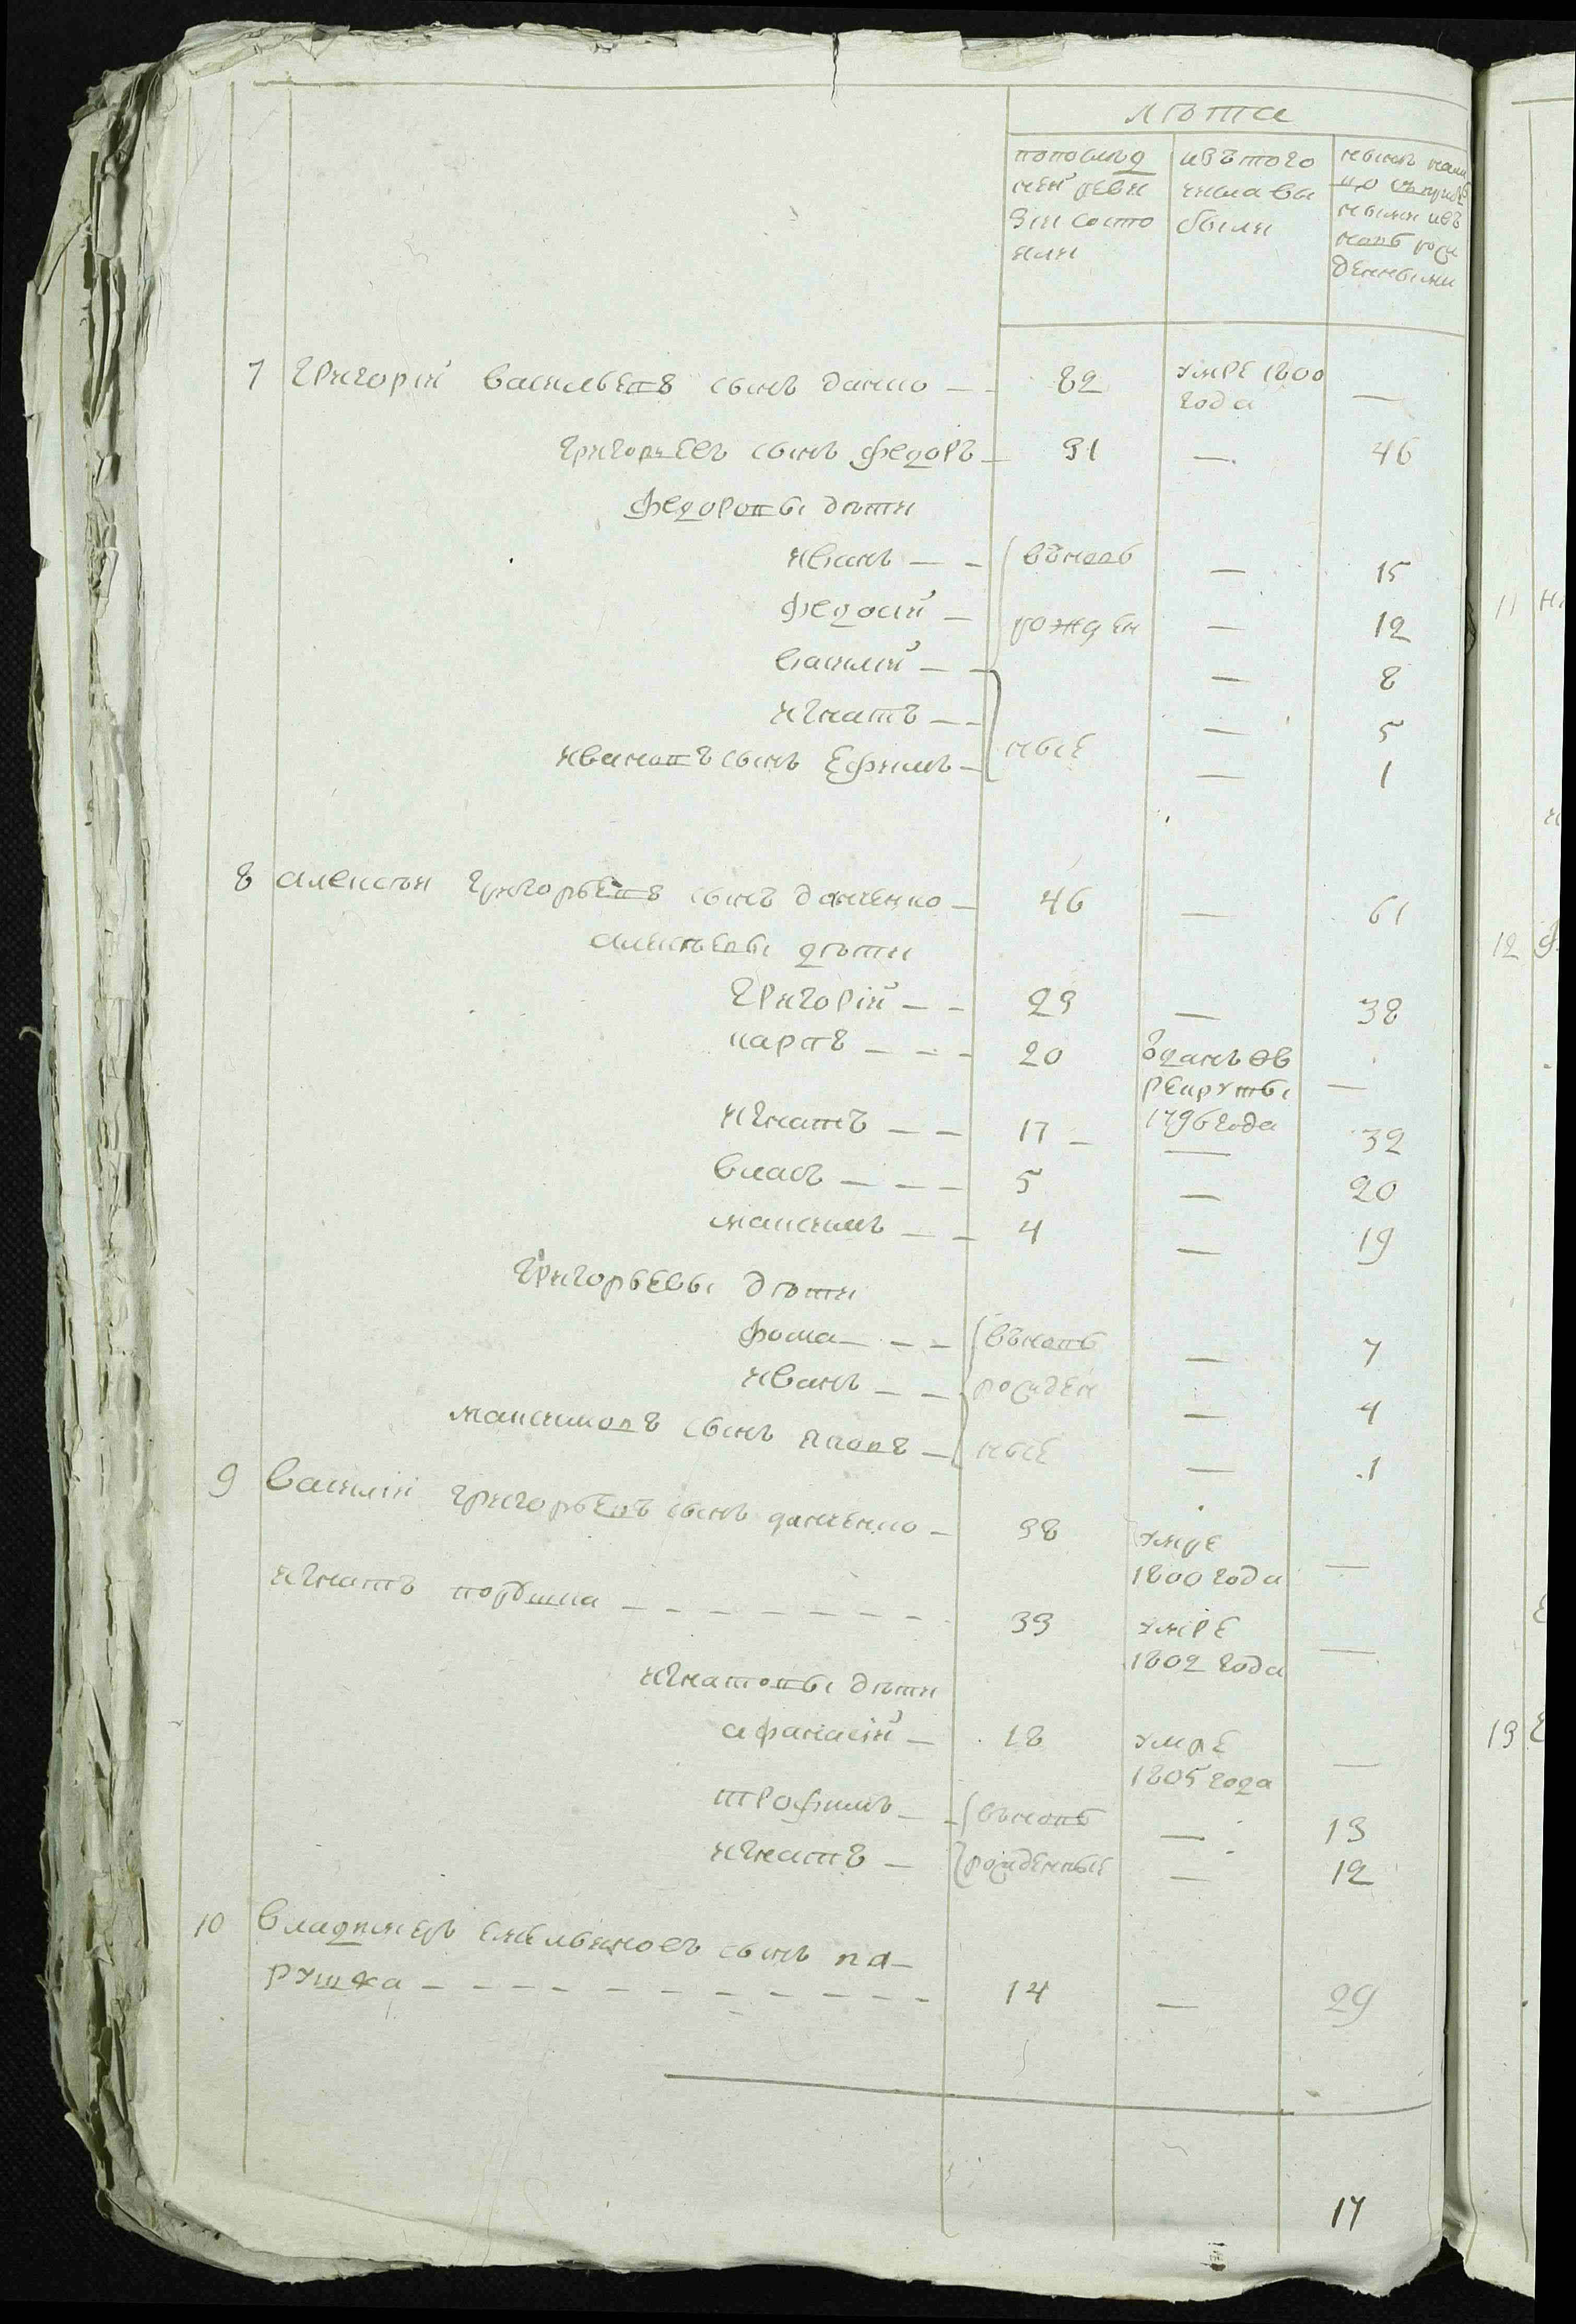 лѣта
попослѣд изъ того нынѣ нали
ней реви числа вы цо съ прибы
зіи состо были лыми изъ
яли новъ рож
денными
7 Григорій Васильевъ сынъ данко — 82 умре 1800 года —
Григорьевъ сынъ Федоръ — 31 — 46
Федоровы дѣти
Иванъ — — въновь — 15
Федосій — рожден — 12
Василій — — — 8
Игнатъ — — — 5
Ивановъ сынъ Ефимъ — ные — 1
8 Алексѣй Григорьевъ сынъ данченко — 46 — 61
Алексѣевы дѣти
Григорій — — 23 — 38
Карпъ — — — 20 ѿданъ въ рекруты 1796 года —
Игнатъ — — 17 — — 32
Власъ — — — 5 — 20
Максимъ — — 4 — 19
Григорьевы дѣти
Фома — — — въновь — 7
Иванъ — — рожден — 4
Максимовъ сынъ Яковъ — ные — 1
9 Василій Григорьевъ сынъ данченко — 38 умре 1800 года —
Игнатъ — — — — — — — 33 умре 1802 года —
Игнатовы дѣти
Афанасій — 18 умре 1805 года —
Трофимъ — — въновь — 13
Игнатъ — рожденные — 12
10 Владимеръ Емельяновъ сынъ па—
рушка — — — — — — — — — — 14 — 29
17
11
12
13